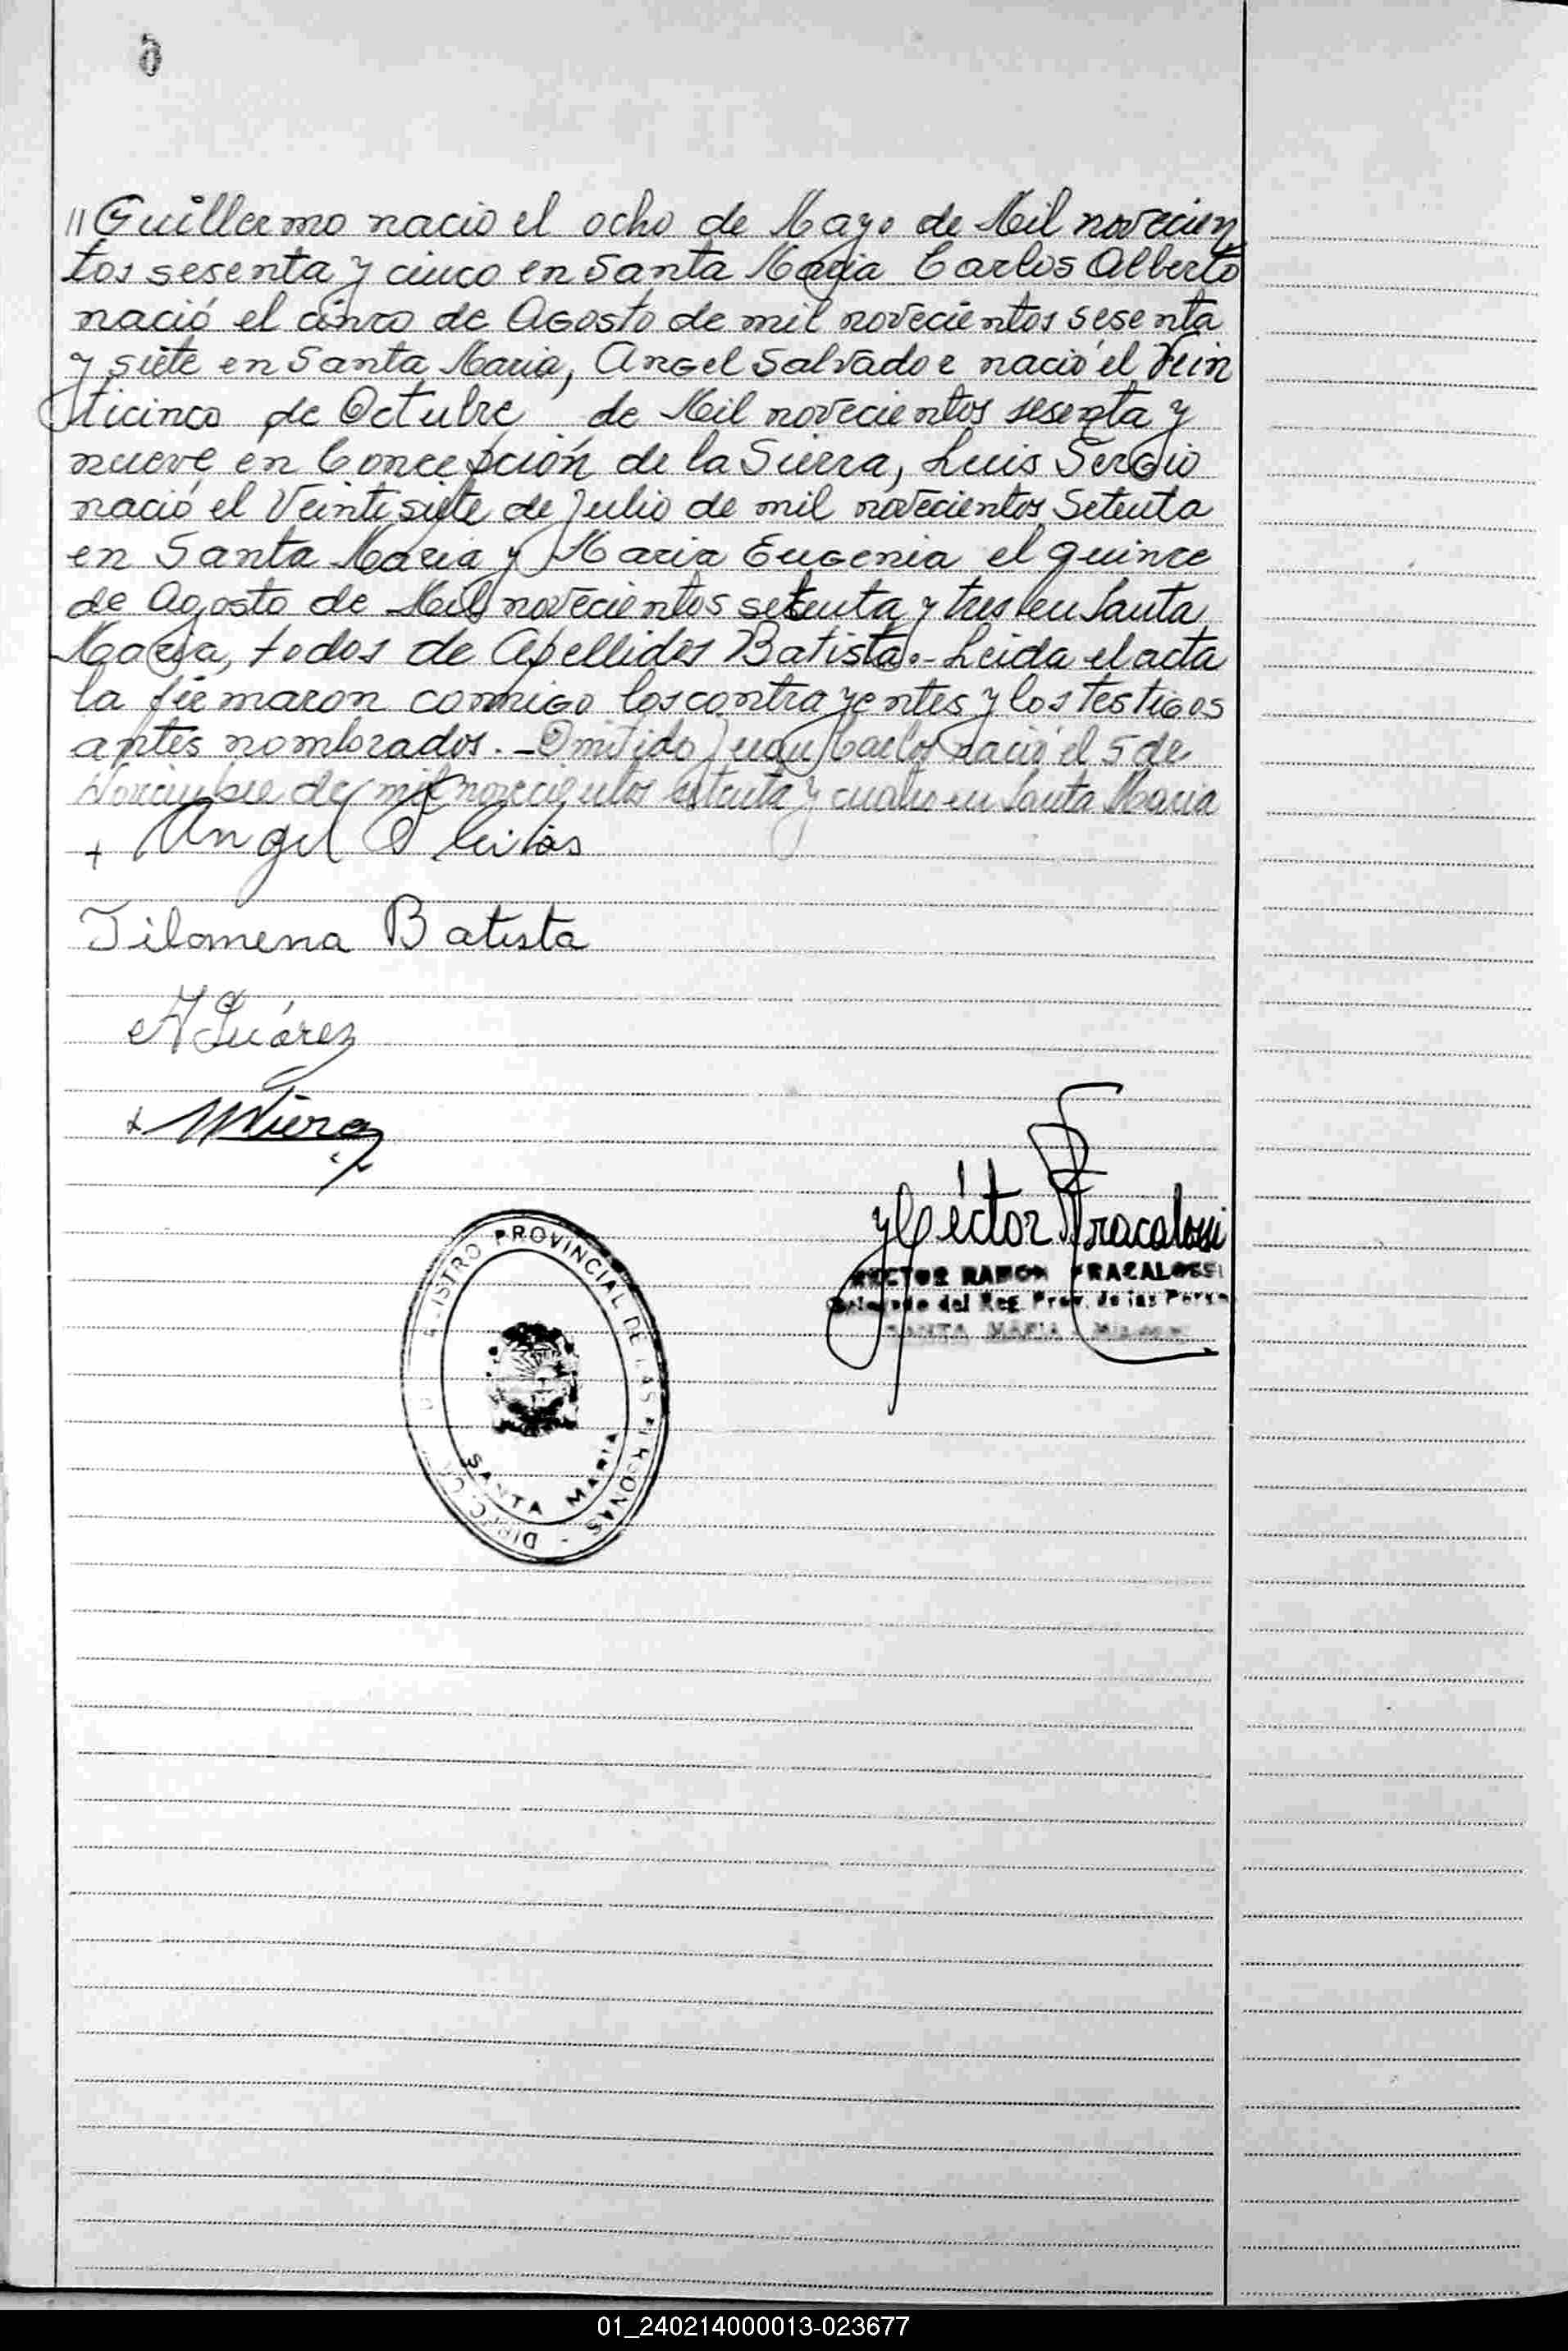 6
"Guillermo nacio el ocho de Mayo de Mil novecien
tos sesenta y cinco en Santa Maria Carlos Alberto
nació el cinco de Agosto de mil novecientos sesenta
y siete en Santa Maria, Angel Salvador nació el Vein
ticinco de Octubre de Mil novecientos sesenta y
nueve en Concepción de la Sierra, Luis Sergio
nació el Veintisiete de Julio de mil novecientos Setenta
en Santa Maria y Maria Eugenia el quince
de Agosto de Mil novecientos setenta y tres en Santa
Maria, todos de Apellidos Batista.- Leida el acta
la firmaron conmigo los contrayentes y los testigos
antes nombrados.- Omitido Juan Carlos nació el 5 de
Noviembre de mil novecientos setenta y cuatro en Santa Maria
+ Angel
Filomena Batista
A Suárez
Héctor R Fracalossi
HECTOR RAMON FRACALOSSI
Delegado del Reg. Prov. de las Person
SANTA MARIA - Misiones
DIRECCION REGISTRO PROVINCIAL DE LAS PERSONAS -
SANTA MARIA
01_240214000013-023677